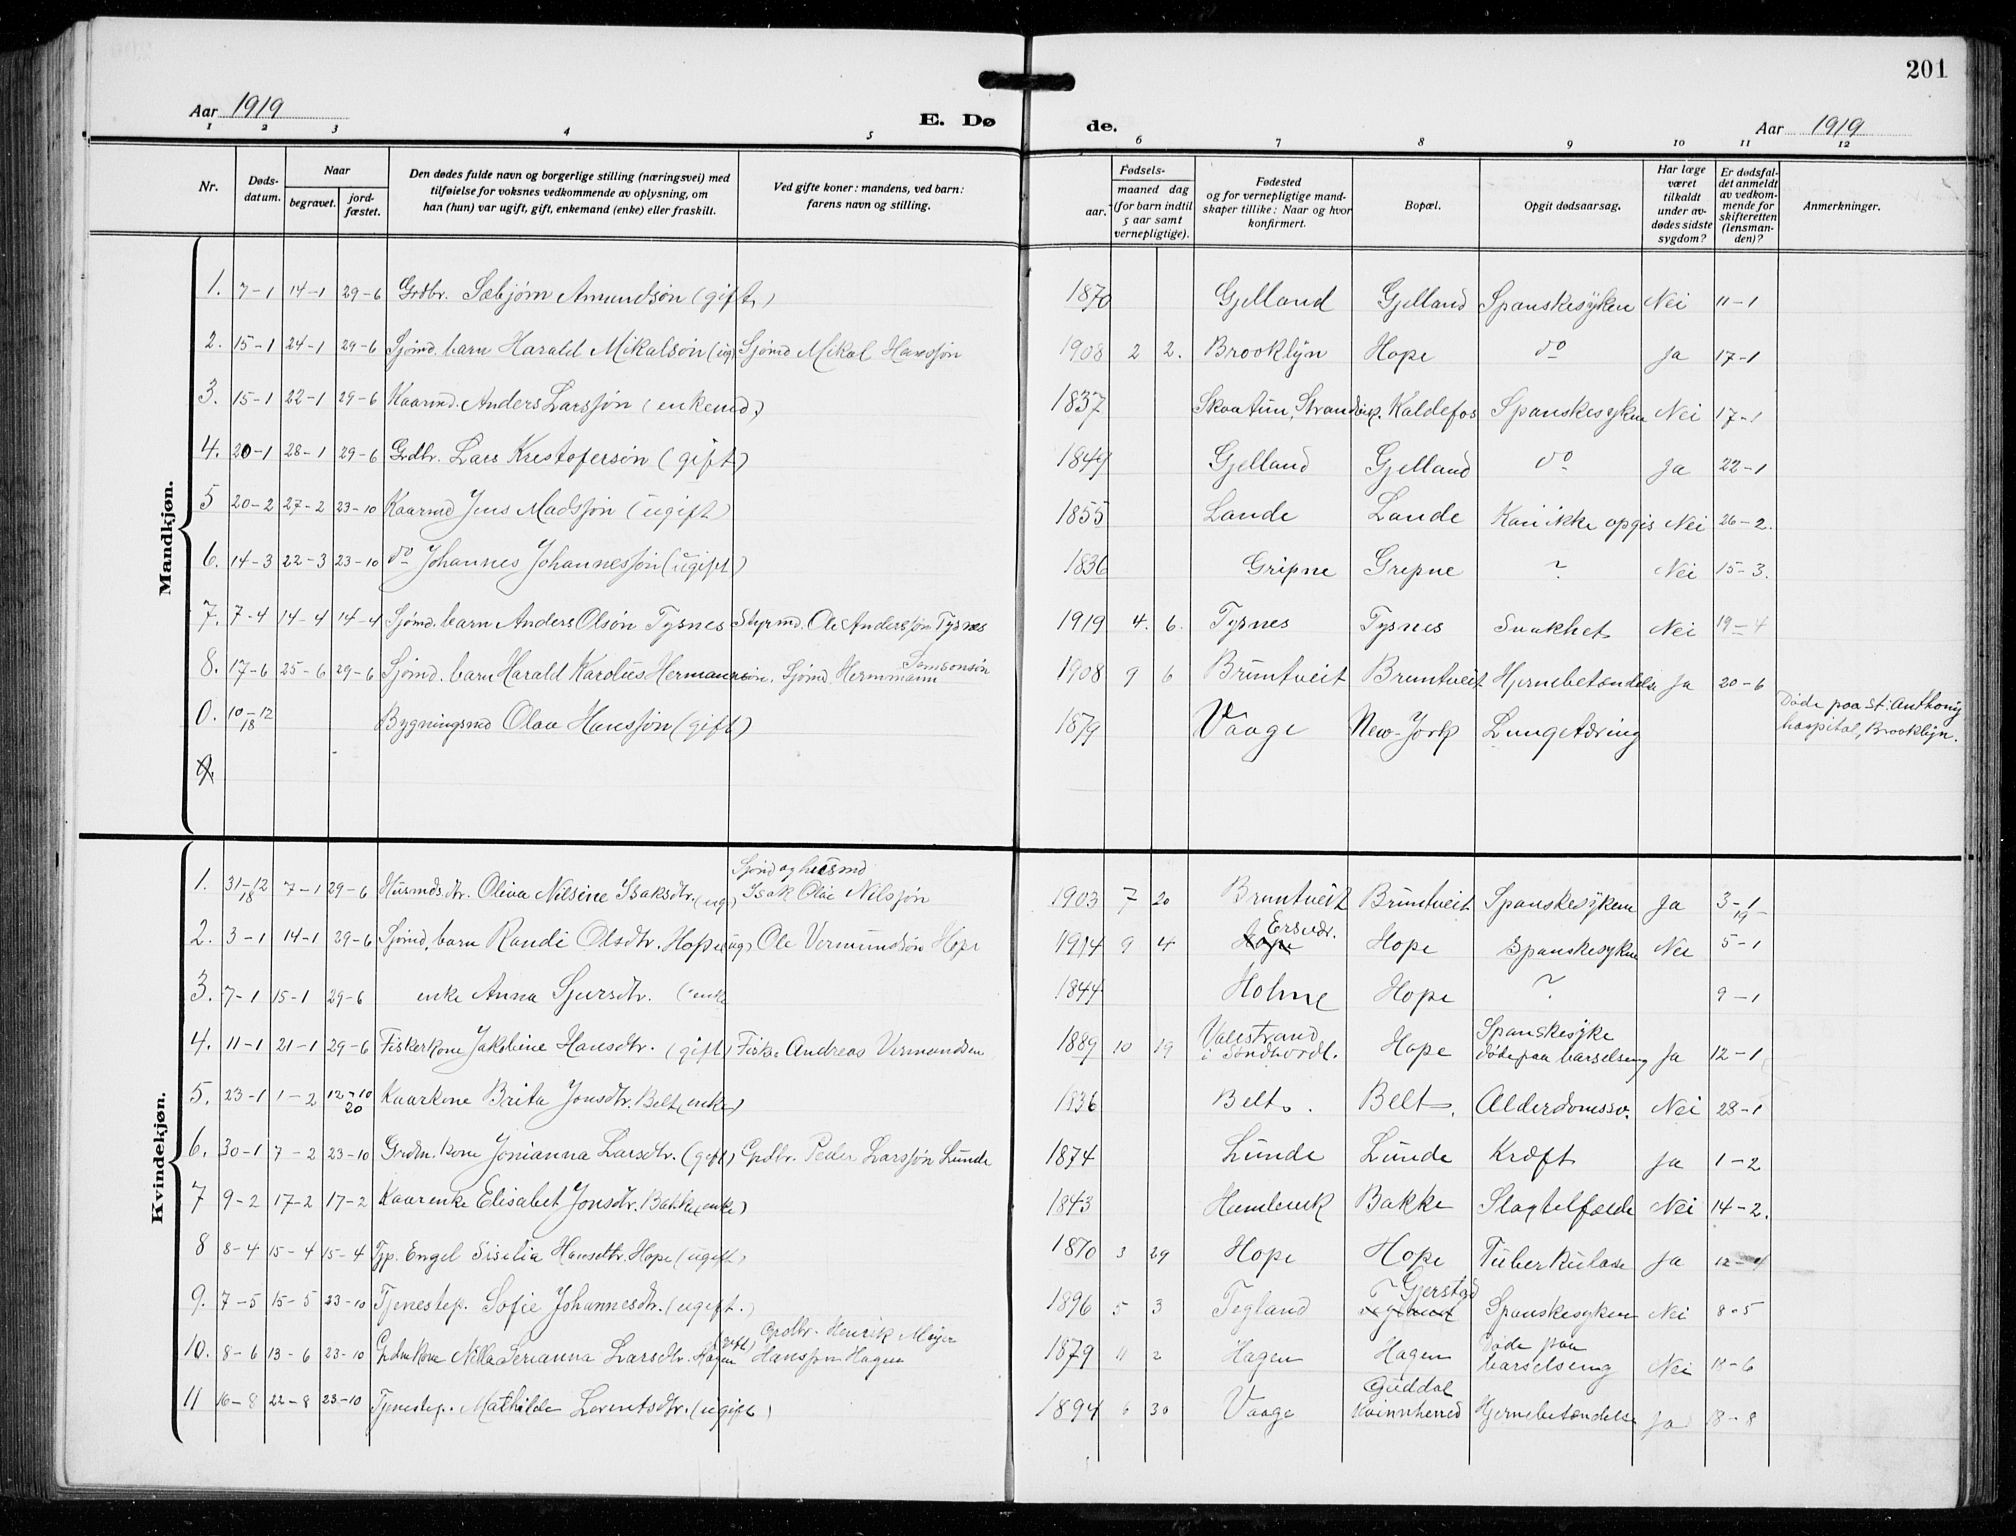 201
Aar 1919 E. Dø de. Aar 1919
1 2 3 4 5 6 7 8 9 10 11 12
Nr.
Døds-
datum.
Naar
begravet.
jord-
fæstet.
Den dødes fulde navn og borgerlige stilling (næringsvei) med
tilføielse for voksnes vedkommende av oplysning, om
han (hun) var ugift, gift, enkemand (enke) eller fraskilt.
Ved gifte koner: mandens, ved barn:
farens navn og stilling.
Fødsels-
aar.
maaned dag
(for barn indtil
5 aar samt
vernepligtige).
Fødested
og for vernepligtige mand-
skaper tillike: Naar og hvor
konfirmert.
Bopæl.
Opgit dødsaarsag.
Har læge
været
tilkaldt
under av-
dødes sidste
sygdom?
Er dødsfal-
det anmeldt
av vedkom-
mende for
skifteretten
(lensman-
den)?
Anmerkninger.
Mandkjøn.
1. 7-1 14-1 29-6 Grdbr. Sæbjørn Amundsøn (gift) 1870 Gjelland Gjelland Spanskesyken Nei 11-1
2. 15-1 24-1 29-6 Sjømd. barn Harald Mikalsøn (ug) Sjømd Mikal Hanssøn 1908 2 2. Brooklyn Hope do Ja 17-1
3. 15-1 22-1 29-6 Kaarmd. Anders Larssøn (enkemd.) 1837 Skaatun, Strandvik. Kaldefos Spanskesyken Nei 17-1
4. 20-1 28-1 29-6 Grdbr. Lars Kristofersøn (gift) 1849 Gjelland Gjelland do Ja 22-1
5 20-2 27-2 23-10 Kaarmd Jens Madssøn (ugift) 1855 Lande Lande Kan ikke opgis Nei 26-2.
6. 14-3 22-3 23-10 do Johannes Johannessøn (ugift) 1836 Gripne Gripne ? Nei 15-3.
7. 7-4 14-4 14-4 Sjømd. barn Anders Olsøn Tysnes Styrmd. Ole Anderssøn Tysnes 1919 4. 6. Tysnes Tysnes Svakhet Nei 19-4
8. 17-6 25-6 29-6 Sjømd. barn Harald Karolus Hermansøn. Sjømd Hermmann Samsonsøn 1908 9 6 Bruntveit Bruntveit Hjernebetændelse Ja 20-6
0. 10-12 18 Bygningsmd Olaa Hanssøn (gift) 1879 Vaage New-York Lungetæring Døde paa St. Anthony
hospital, Brooklyn.
9.
Kvindekjøn.
Sjømd og husmd
1. 31-12 18 7-1 29-6 Husmds.dtr. Oliva Nilsine Isaksdtr. (ug) Isak Olai Nilssøn 1903 7 20 Bruntveit Bruntveit Spanskesyken Ja 3-1 19
2. 3-1 14-1 29-6 Sjømd. barn Randi Olsdtr. Hope (ug) Ole Vermundsøn Hope 1914 9 4 Hope Ersvær. Hope Spanskesyken Nei 5-1
3. 7-1 15-1 29-6 enke Anna Sjursdtr. (enke 1844 Holme Hope ? 9-1
4. 11-1 21-1 29-6 Fiskerkone Jakobine Hansdtr. (gift) Fisk. Andreas Vermundsen 1889 10 19 Valestrand
i Søndhordl. Hope Spanskesyke
døde paa barselseng Ja 12-1
5. 23-1 1-2 12-10 20 Kaarkone Brita Jonsdtr. Belt (enke) 1836 Belt. Belt. Alderdomssv. Nei 28-1
6. 30-1 7-2 23-10 Grdm. kone Jonianna Larsdtr. (gift) Grdbr. Peder Larssøn Lunde 1874 Lunde Lunde Kræft Ja 1-2
7 9-2 17-2 17-2 Kaarenke Elisabet Jonsdtr. Bakke (enke) 1843 Humlevik Bakke Slagtelfælde Nei 14-2.
8 8-4 15-4 15-4 Tjp. Engel Sisilia Hansdtr. Hope (ugift) 1870 3 29 Hope Hope Tuberkulose Ja 12-4
9. 7-5 15-5 23-10 Tjenestep. Sofie Johannesdtr. (ugift.) 1896 5 3 Tegland Tegland Gjerstad Spanskesyken Nei 8-5
10. 8-6 13-6 23-10 Grdmkone Nilla Serianna Larsdtr. Hagen (gift) Grdbr. Henrik Meyer
Hanssøn Hagen 1879 11 2 Hagen Hagen Døde paa
barselseng Nei 18-6
11 16-8 22-8 23-10 Tjenestep. Mathilde Lorentsdtr. (ugift) 1894 6 30 Vaage Guddal
Kvinnherred Hjernebetændelse Ja 18-8